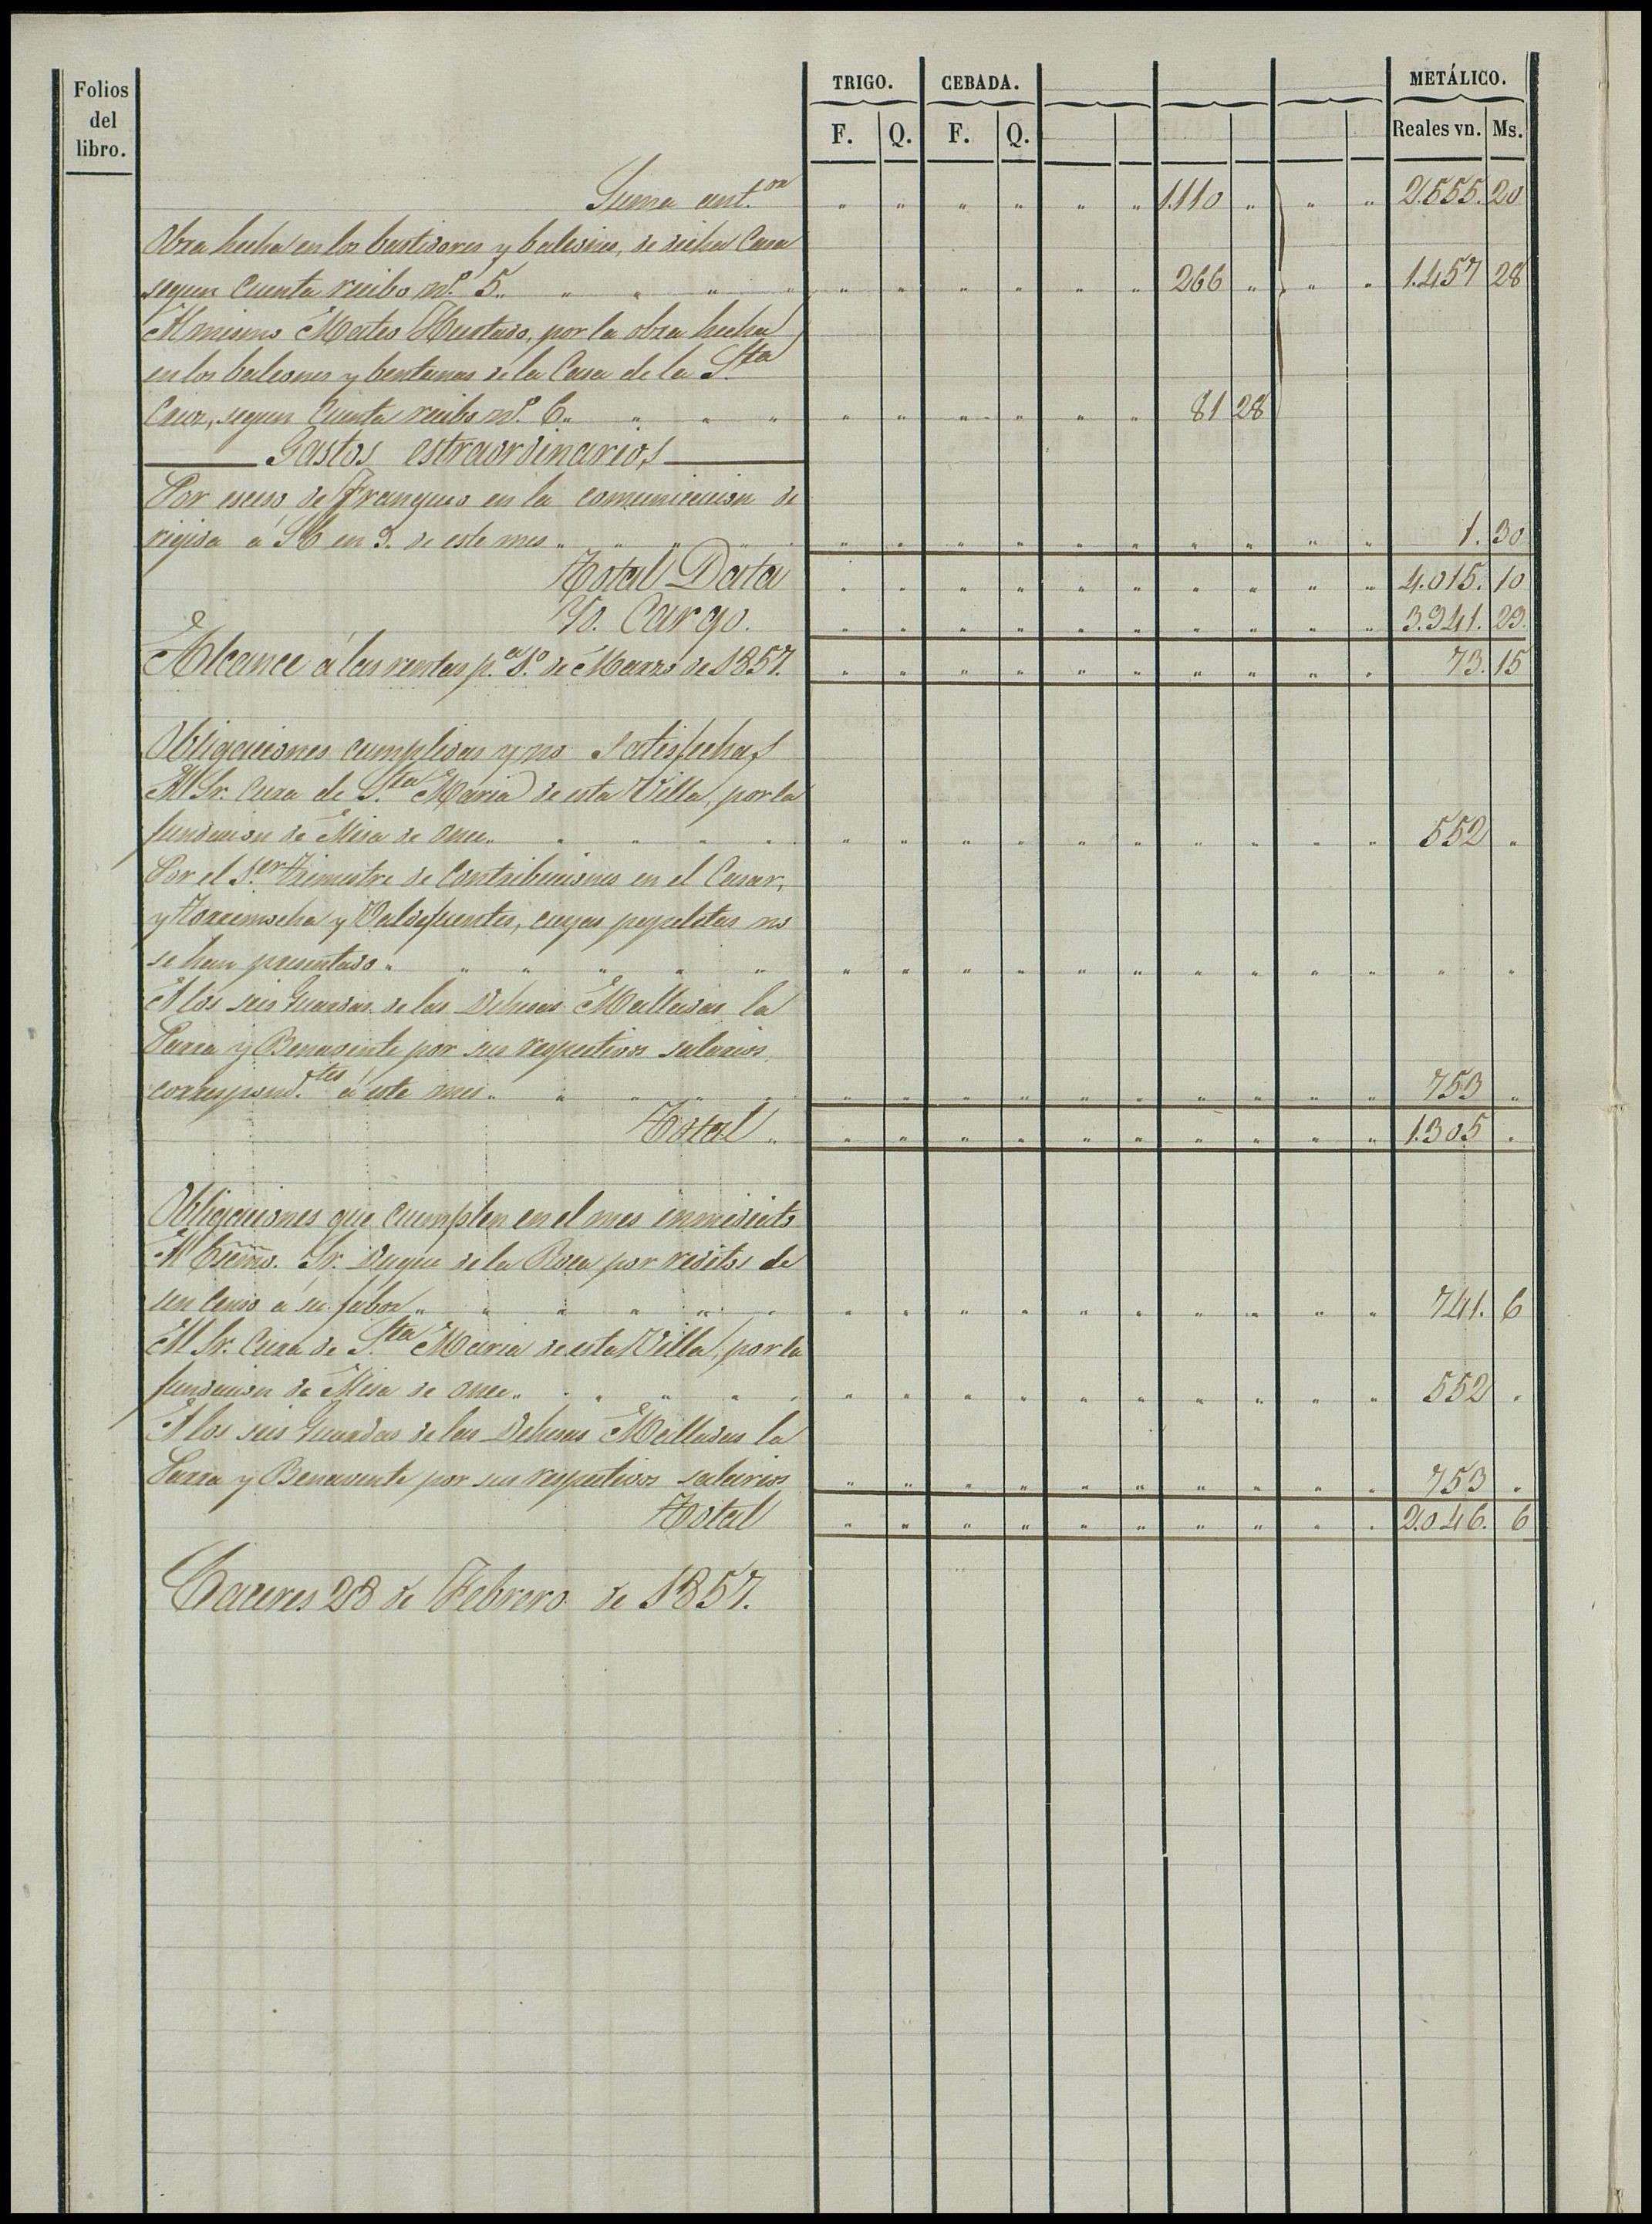 Folios del libro. TRIGO. CEBADA. METÁLICO.
F. Q. F. Q. Reales vn. Ms.
Suma ant.or " " " " " " 1.110 " " " 2.555. 20
Obra hecha en los bastidores y balcones, de dicha Casa
segun Cuenta recibo n.º 5 " " " " " " " " " " 266 " " " 1.457 28
Al mismo Mateo Hurtado, por la obra hecha
en los balcones y bentanas de la Casa de la S.ta
Cruz, segun Cuenta recibo n.º 6 " " " " " " " " " 81 28
Gastos estraordinarios
Por esceso de franqueo en la comunicacion di
rigida a S E en 9. de este mes " " " " " " " " " " " " " " 1. 30
Total Data " " " " " " " " " " 4.015. 10
Yd. Cargo. " " " " " " " " " " 3.941. 29.
Alcance á las rentas p.a 1.º de Marzo de 1857. " " " " " " " " " " 73. 15
Obligaciones cumplidas y no satisfechas
Al Sr. Cura de S.ta Maria de esta Villa, por la
fundacion de Misa de once " " " " " " " " " " " " " " " 552 "
Por el 1.er trimestre de Contribuciones en el Casar,
y Torremocha y Valdefuentes, cuyas papeletas no
se han presentado " " " " " " " " " " " " " " " " " "
A los seis Guardas de las Dehesas Malladas la
Parra y Benavente por sus respectivos salarios
correspond.tes á este mes " " " " " " " " " " " " " " " 753 "
Total " " " " " " " " " " " 1.305 "
Obligaciones que cumplen en el mes inmediato
Al Escmo. Sr. Duque de la Roca por reditos de
un Censo á su fabor " " " " " " " " " " " " " " " " 741. 6
Al Sr. Cura de S.ta Maria de esta Villa, por la
fundacion de Misa de once " " " " " " " " " " " " " " " 552 "
A los seis Guardas de las Dehesas Malladas la
Parra y Benavente por sus respectivos salarios " " " " " " " " " " 753 "
Total " " " " " " " " " " 2.046. 6
Caceres 28 de Febrero de 1857.